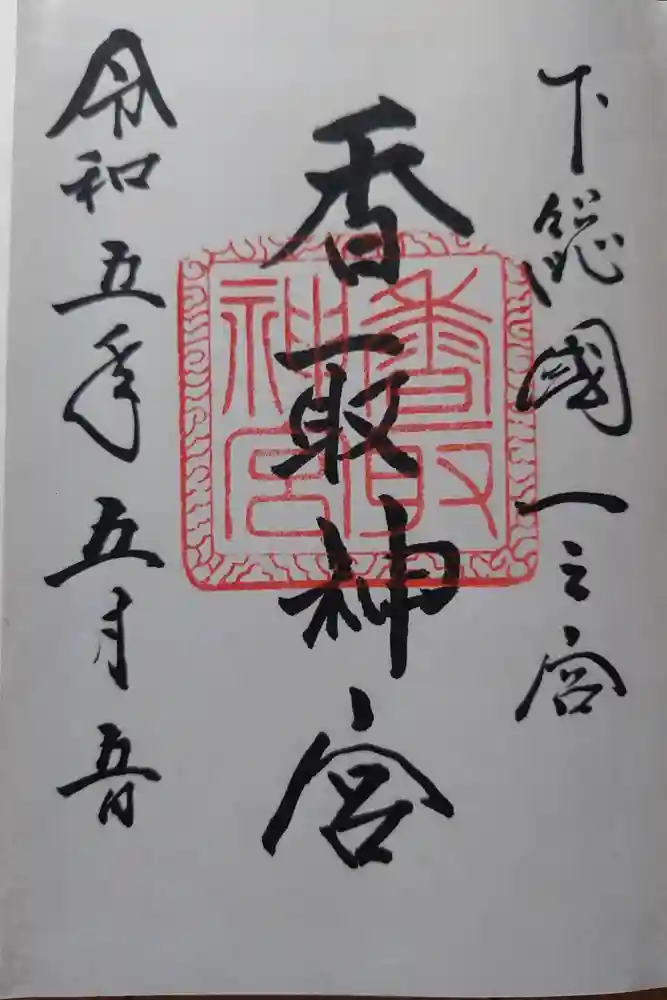 下總國一之宮
香取神宮
香取神宮
令和五年五月五日